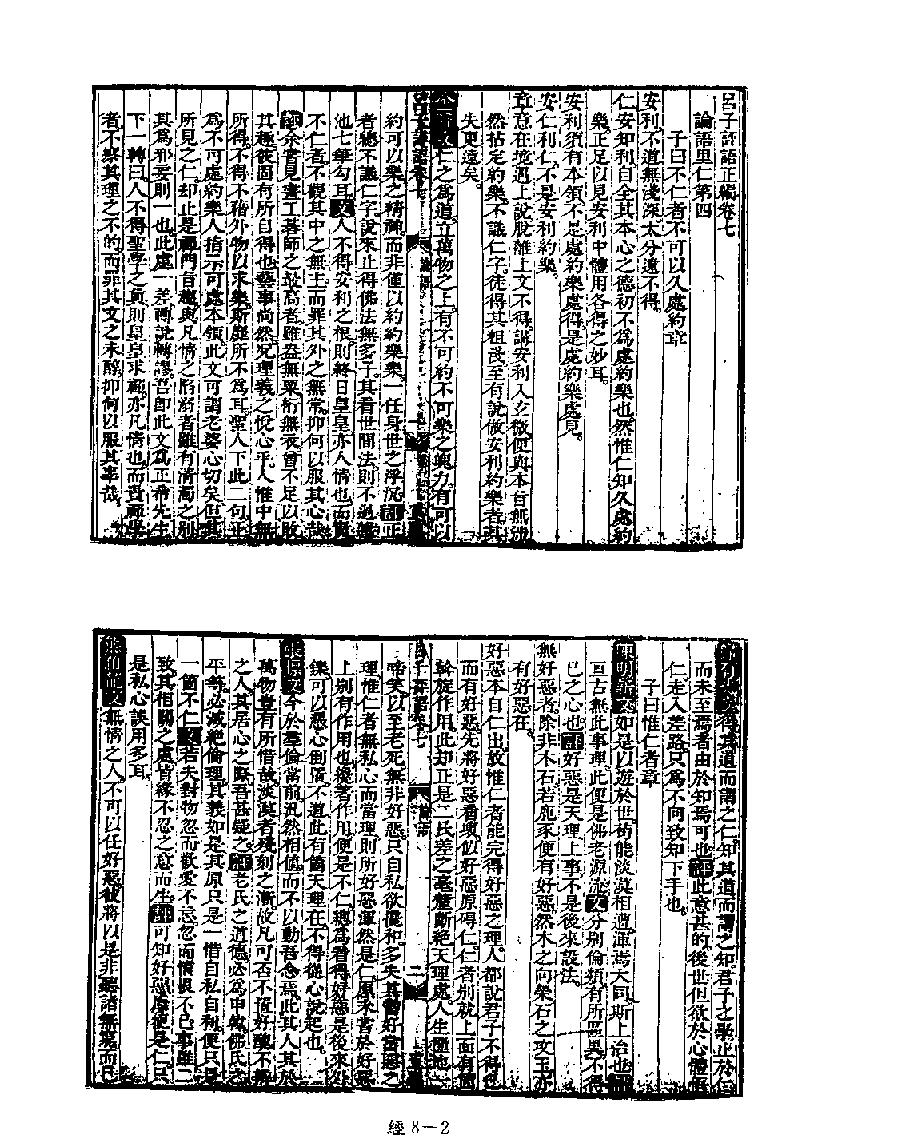 呂子評語正編卷七
論語里仁第四
子曰不仁者不可以久處約章
安利不道無淺深太分遠不得
仁安知利自全其本心之德初不爲處約樂也然惟仁知久處約
樂正足以見安利中體用各得之妙耳
安利須有本領不是處約樂處得是處約樂處見
安仁利仁不是安利約樂
章意在境遇上說脫離上文不得講安利入玄微便與本旨無涉
然拈定約樂不議仁字徒得其粗淺至有說做安利約樂者其
失更遠矣
仁之爲道立萬物之上有不可約不可樂之與力有可以
約可以樂之精神而非僅以約約樂樂一任身世之浮沉評正
者總不議仁字說來止得佛法無多子其看世間法則不過
他七筆勾耳文人不得安利之根則終日皇皇亦人情也而
不仁者不觀其中之無主而罪其外之無常抑何以服其心哉
評余嘗見畫工著師之最高者雖盎無粟桁無衣曾不足以敗
其趣彼固有所自得也藝事尚然況理義之悅心乎人惟中無
所得不得不藉外物以求樂斯靡所不爲耳聖人下此二句正
爲不可處約樂人指示可處本領此文可謂老婆心切矣但其
所見之仁却止是禪門旨趣與凡情之陷溺者雖有清濁之別
其爲邪妄則一也此處一差兩說轉謬吾即此文爲正希先生
下一轉曰人不得聖學之眞則皇皇求禪亦凡情也而
者不察其理之不的而罪其文之未醇抑何以服其辜哉
得其道而謂之仁知其道而謂之知君子之學止於仁
而未至焉者由於知焉可也評此意甚的後世但欲於心體
仁走入差路只爲不向致知下手也
子曰惟仁者章
陳明
如是以遊於世苟能淡莫相遭渾濟大同斯上治也評
亘古無此事理此便是佛老源流文分別倫類有所惡果不得
已之心也評好惡是天理上事不是後來設法
無好惡者除非木石若鹿豕便有好惡然木之向榮石之攻玉亦
有好惡在
好惡本自仁出故惟仁者能完得好惡之理人都說君子不得已
而有好惡先將好惡看壞似好惡原得仁仁者別就上面有個
斡旋作用此却正是二氏差之毫釐斷絕天理處人生墮地
啼笑以至老死無非好惡只自私欲攙和多失其當好當惡之
理惟仁者無私心而當理則所好惡渾然是仁原來審於好惡
上別有作用也纔著作用便是不仁總爲看得好惡是後來外
鑠可以愚心倒置不道此有箇天理在不得從心說起也
文今於羣倫當前汎然相値而不以動吾念焉此其人其於
萬物豈有所惜哉淡漠者殘刻之漸故凡可否不恆好醜不
之人其居心之際吾甚疑之評老氏之道德必爲申韓佛氏之
平等必滅絕倫理其義如是其原只是一惜自私自利便只是
一箇不仁文若夫對物忽而歡愛不忌忽而憤恨不已事雖二
致其相關之處皆緣不忍之意而生評可知好惡原便是仁只
是私心誤用多耳
文無情之人不可以任好惡彼將以是非聽諸無窮而已
經8—2